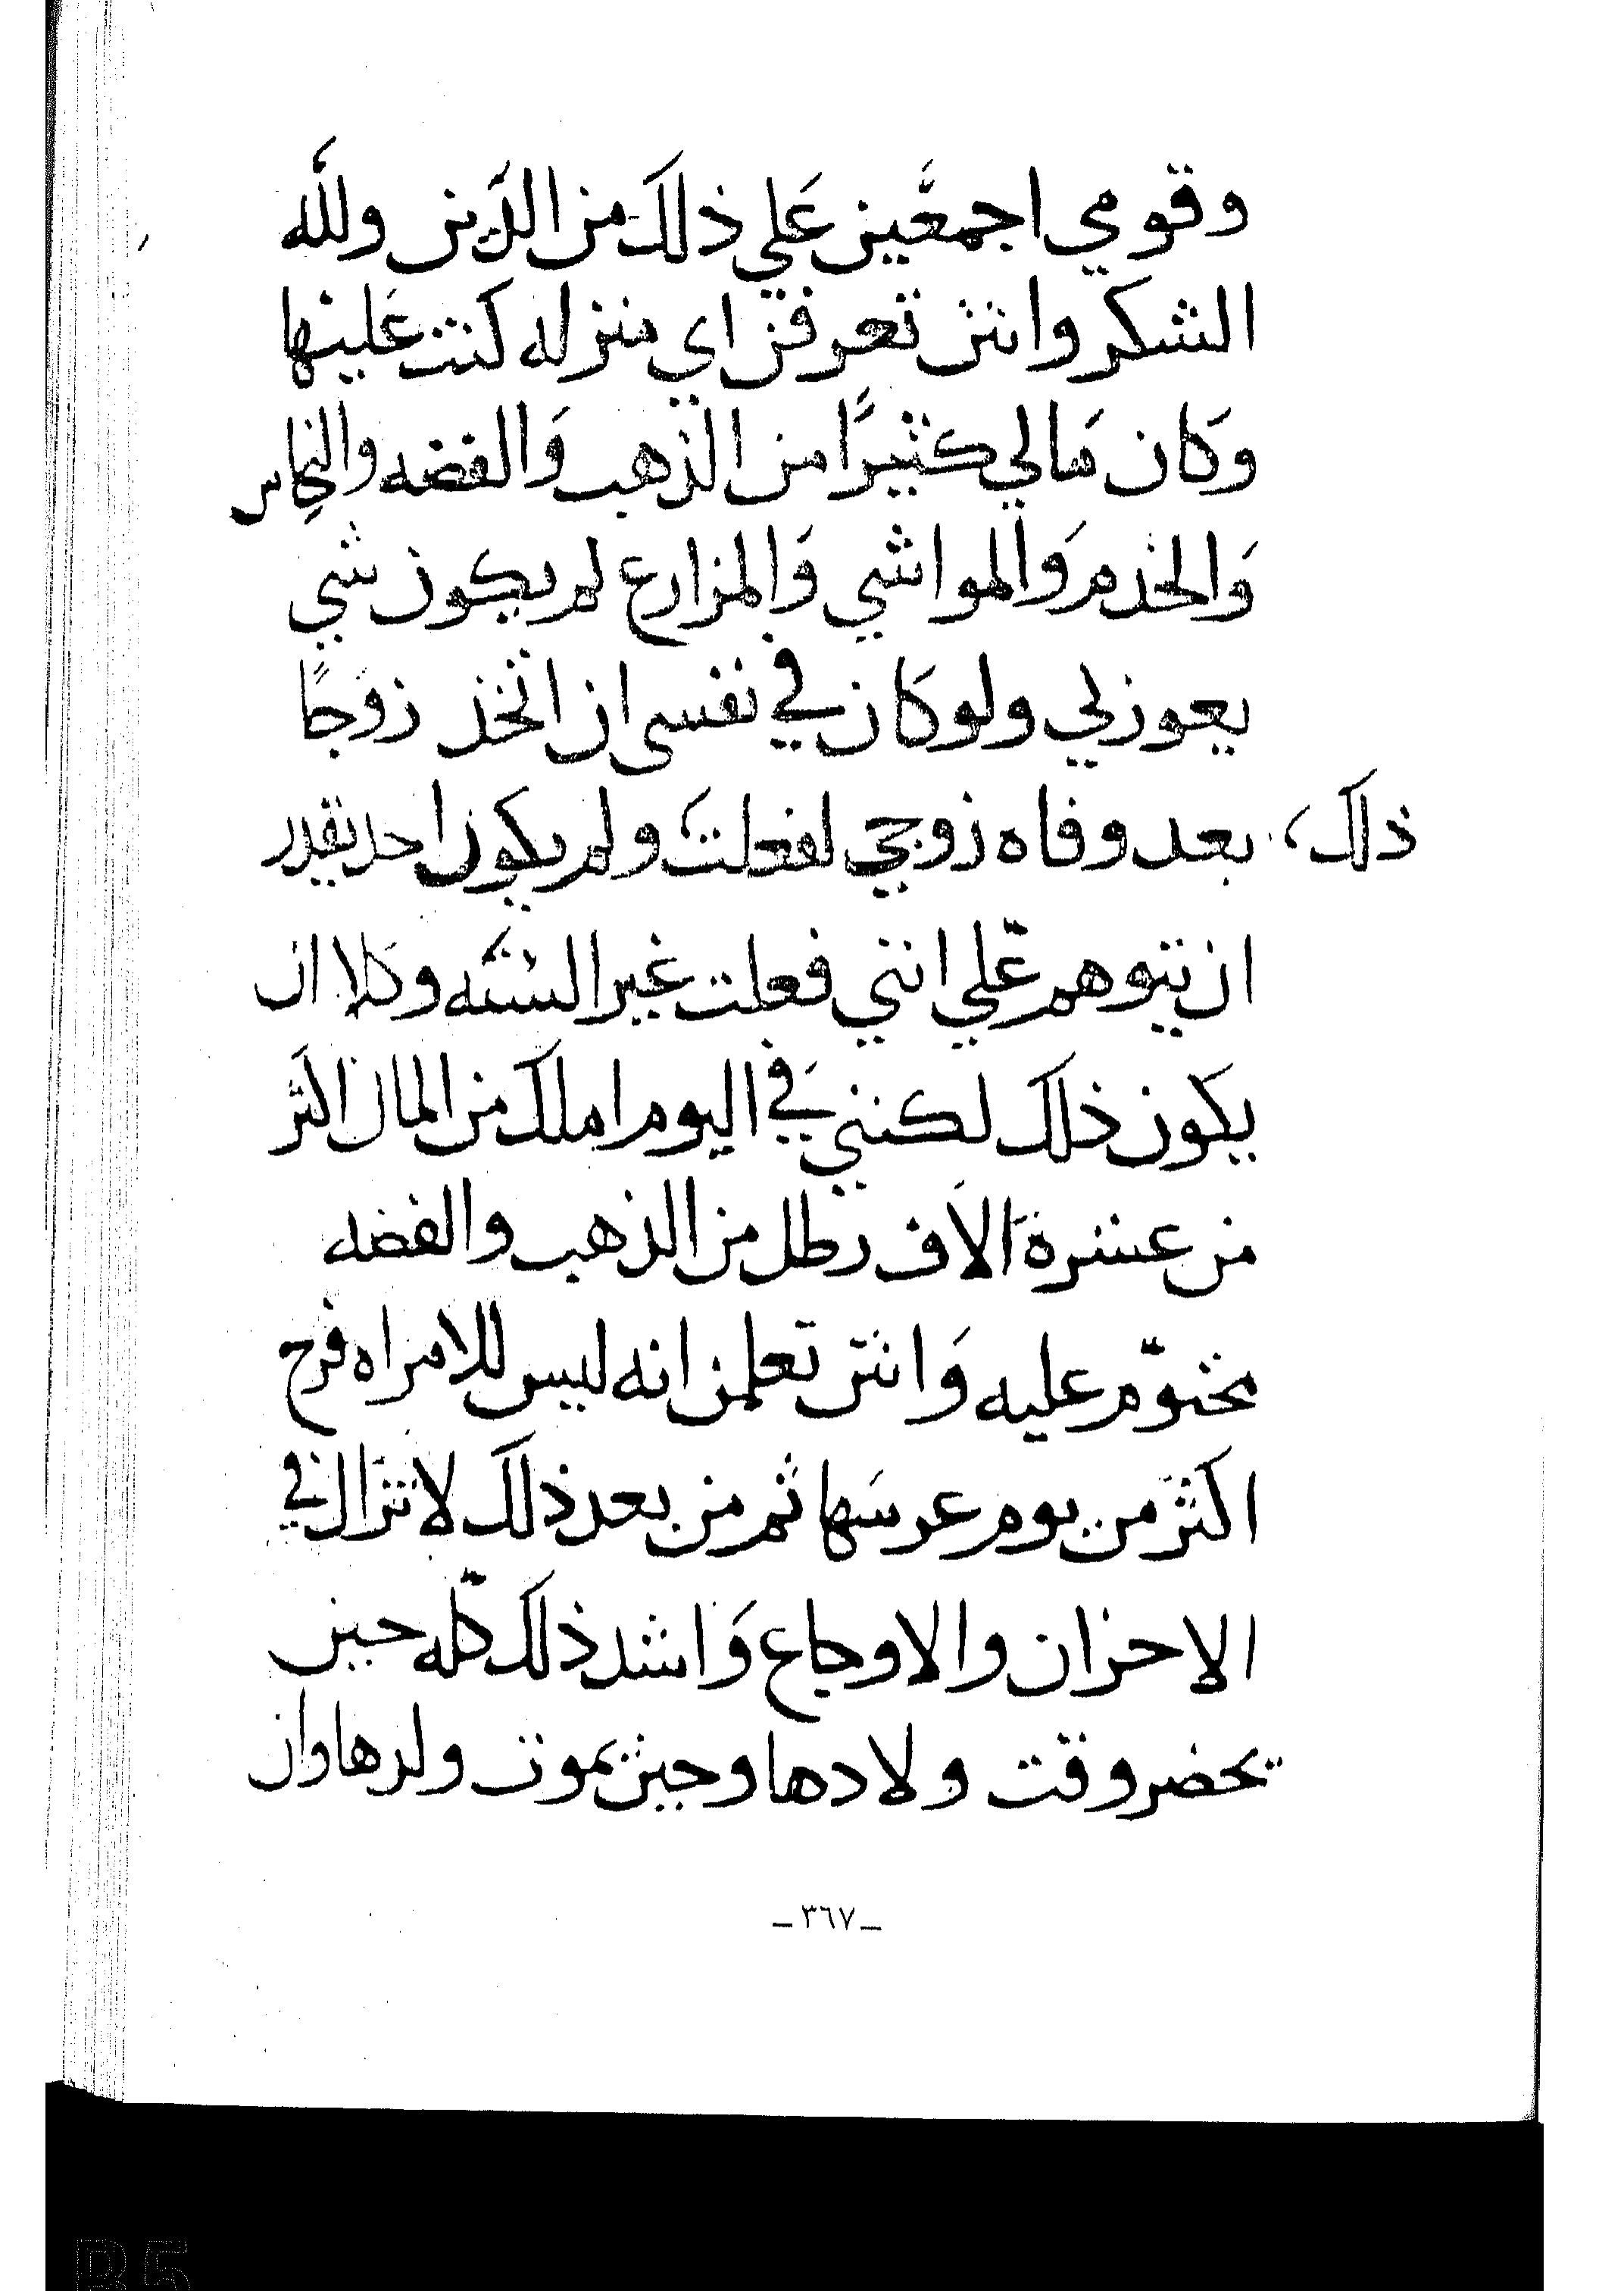 وقومي اجمعّين عَلي ذلكَ من الدَين وللّه
الشكر وانتن تعرفن اي منزله كنت عَلينها
وَكان مَالي كثيرًا من الذهب وَالفضه والنحاس
وَالخدم وَالمواشي وَالمزارع لم يكون شي
يعوزلي ولو كَان في نفسي ان اتخذ زوَجًا
ذلكَ، بعد وفاه زوجي لفعلتَ ولم يكون احد يقدر
ان يتوهم عّلي انني فعلت غير السنَه وكَلا ان
يكون ذلكَ لكنني فَي اليوم املكَ من المال اكثَر
من عشرة اَلاف رطل من الذهب والفضه
مختوّم عليه وَانتن تعلمن انه ليس للامراه فرح
اكثَر من يوم عرسَها ثم من بعد ذلكَ لا تزَال في
الاحزان والاوجاع وَاشد ذلكَ كلّه حين
يحضر وقت ولادها وحين يموت ولدها وان
_ ٣٦٧ _
B5